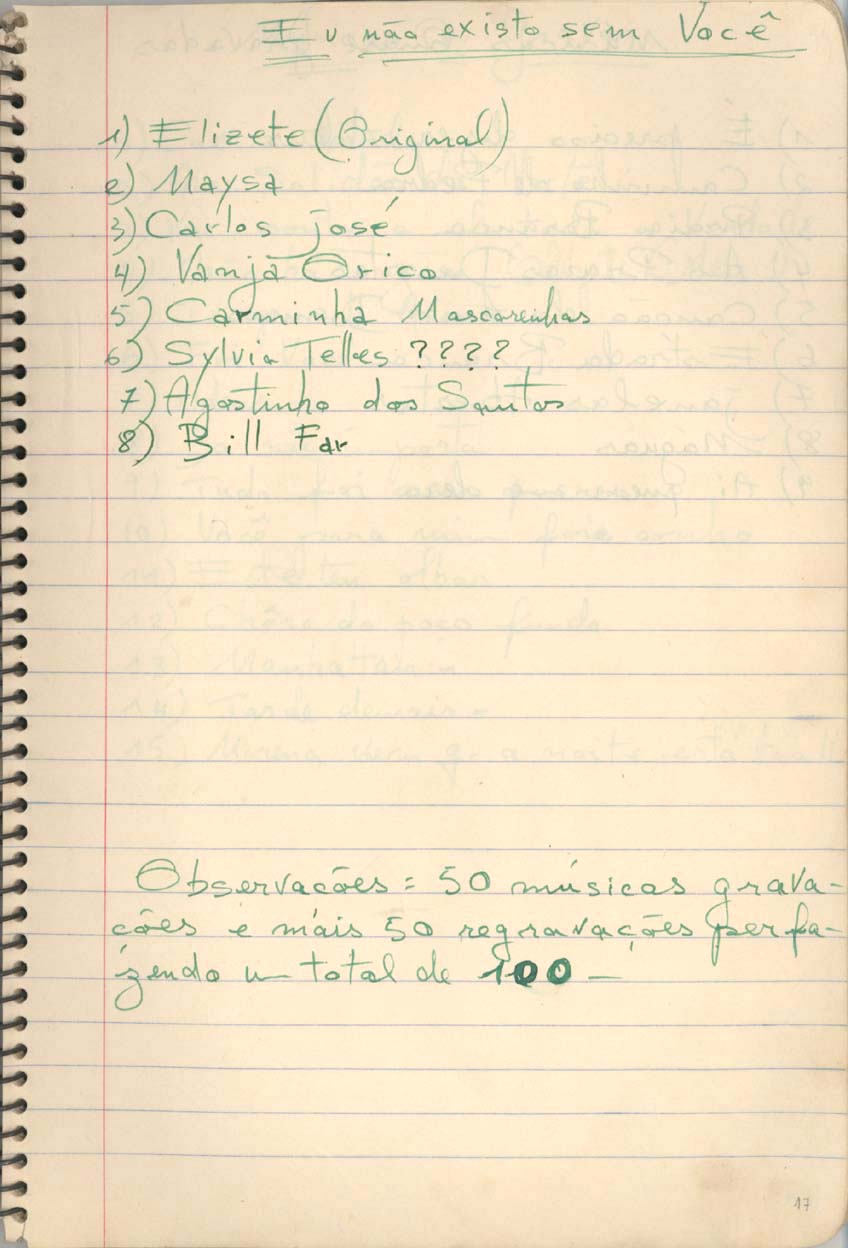 Eu não existo sem Você
1) Elizete (Original)
2) Maysa
3) Carlos José
4) Vanja Orico
5) Carminha Mascarenhas
6) Sylvia Telles ????
7) Agostinho dos Santos
8) Bill Far
Observações = 50 músicas grava-
ções e mais 50 regravações perfa-
zendo um total de 100 —
17